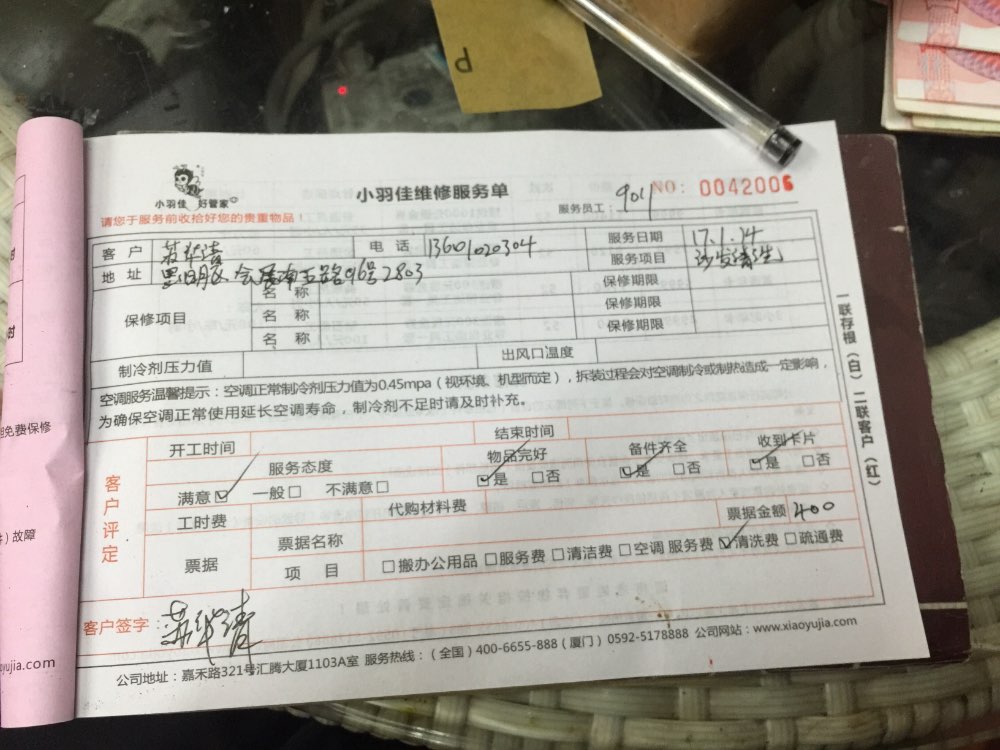 P
小羽佳 好管家
小羽佳维修服务单
NO: 0042006
请您于服务前收拾好您的贵重物品！
服务员工：901
客户 苏华清 电话 13601020304 服务日期 17.1.14
地址 会展南五路96号2803 服务项目 沙发清洗
保修项目
名称 保修期限
名称 保修期限
名称 保修期限
制冷剂压力值 出风口温度
空调服务温馨提示：空调正常制冷剂压力值为0.45mpa（视环境、机型而定），拆装过程会对空调制冷或制热造成一定影响，
为确保空调正常使用延长空调寿命，制冷剂不足时请及时补充。
客户评定
开工时间 结束时间
服务态度 物品完好 备件齐全 收到卡片
满意☑ 一般□ 不满意□ ☑是 □否 ☑是 □否 ☑是 □否
工时费 代购材料费
票据 票据名称 票据金额 400
项目 □搬办公用品 □服务费 □清洁费 □空调 服务费 ☑清洗费 □疏通费
客户签字：苏华清
公司地址：嘉禾路321号汇腾大厦1103A室 服务热线：（全国）400-6655-888（厦门）0592-5178888 公司网站：www.xiaoyujia.com
一联存根（白）二联客户（红）
时
免费保修
）故障
yujia.com